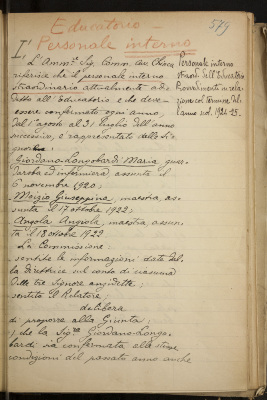 579
Educatorio
I° Personale interno
L'Amm.re Sig. Comm. Cav. Chiara
riferisce che il personale interno
straordinario attualmente ad=
detto all'Educatorio e che deve
essere confermato ogni anno,
dal 1° agosto al 31 luglio dell'anno
successivo, è rappresentato dalle Si=
gnorine
Giordano-Longobardi Maria, guar=
daroba ed infermiera, assunta il
6 novembre 1920;
Moizio Giuseppina, maestra, as=
sunta il 17 ottobre 1922;
Angola Angiola, maestra, assun=
ta il 18 ottobre 1922
La Commissione
sentite le informazioni date dal=
la direttrice sul conto di ciascuna
delle tre signore anzidette;
sentito il Relatore;
delibera
di proporre alla Giunta:
1) che la Sig.ra Giordano-Longo=
bardi sia confermata alle stesse
condizioni del passato anno anche
Personale interno
straord. dell'Educatorio
Provvedimenti in rela=
zione col termine del=
l'anno scol. 1924-25.